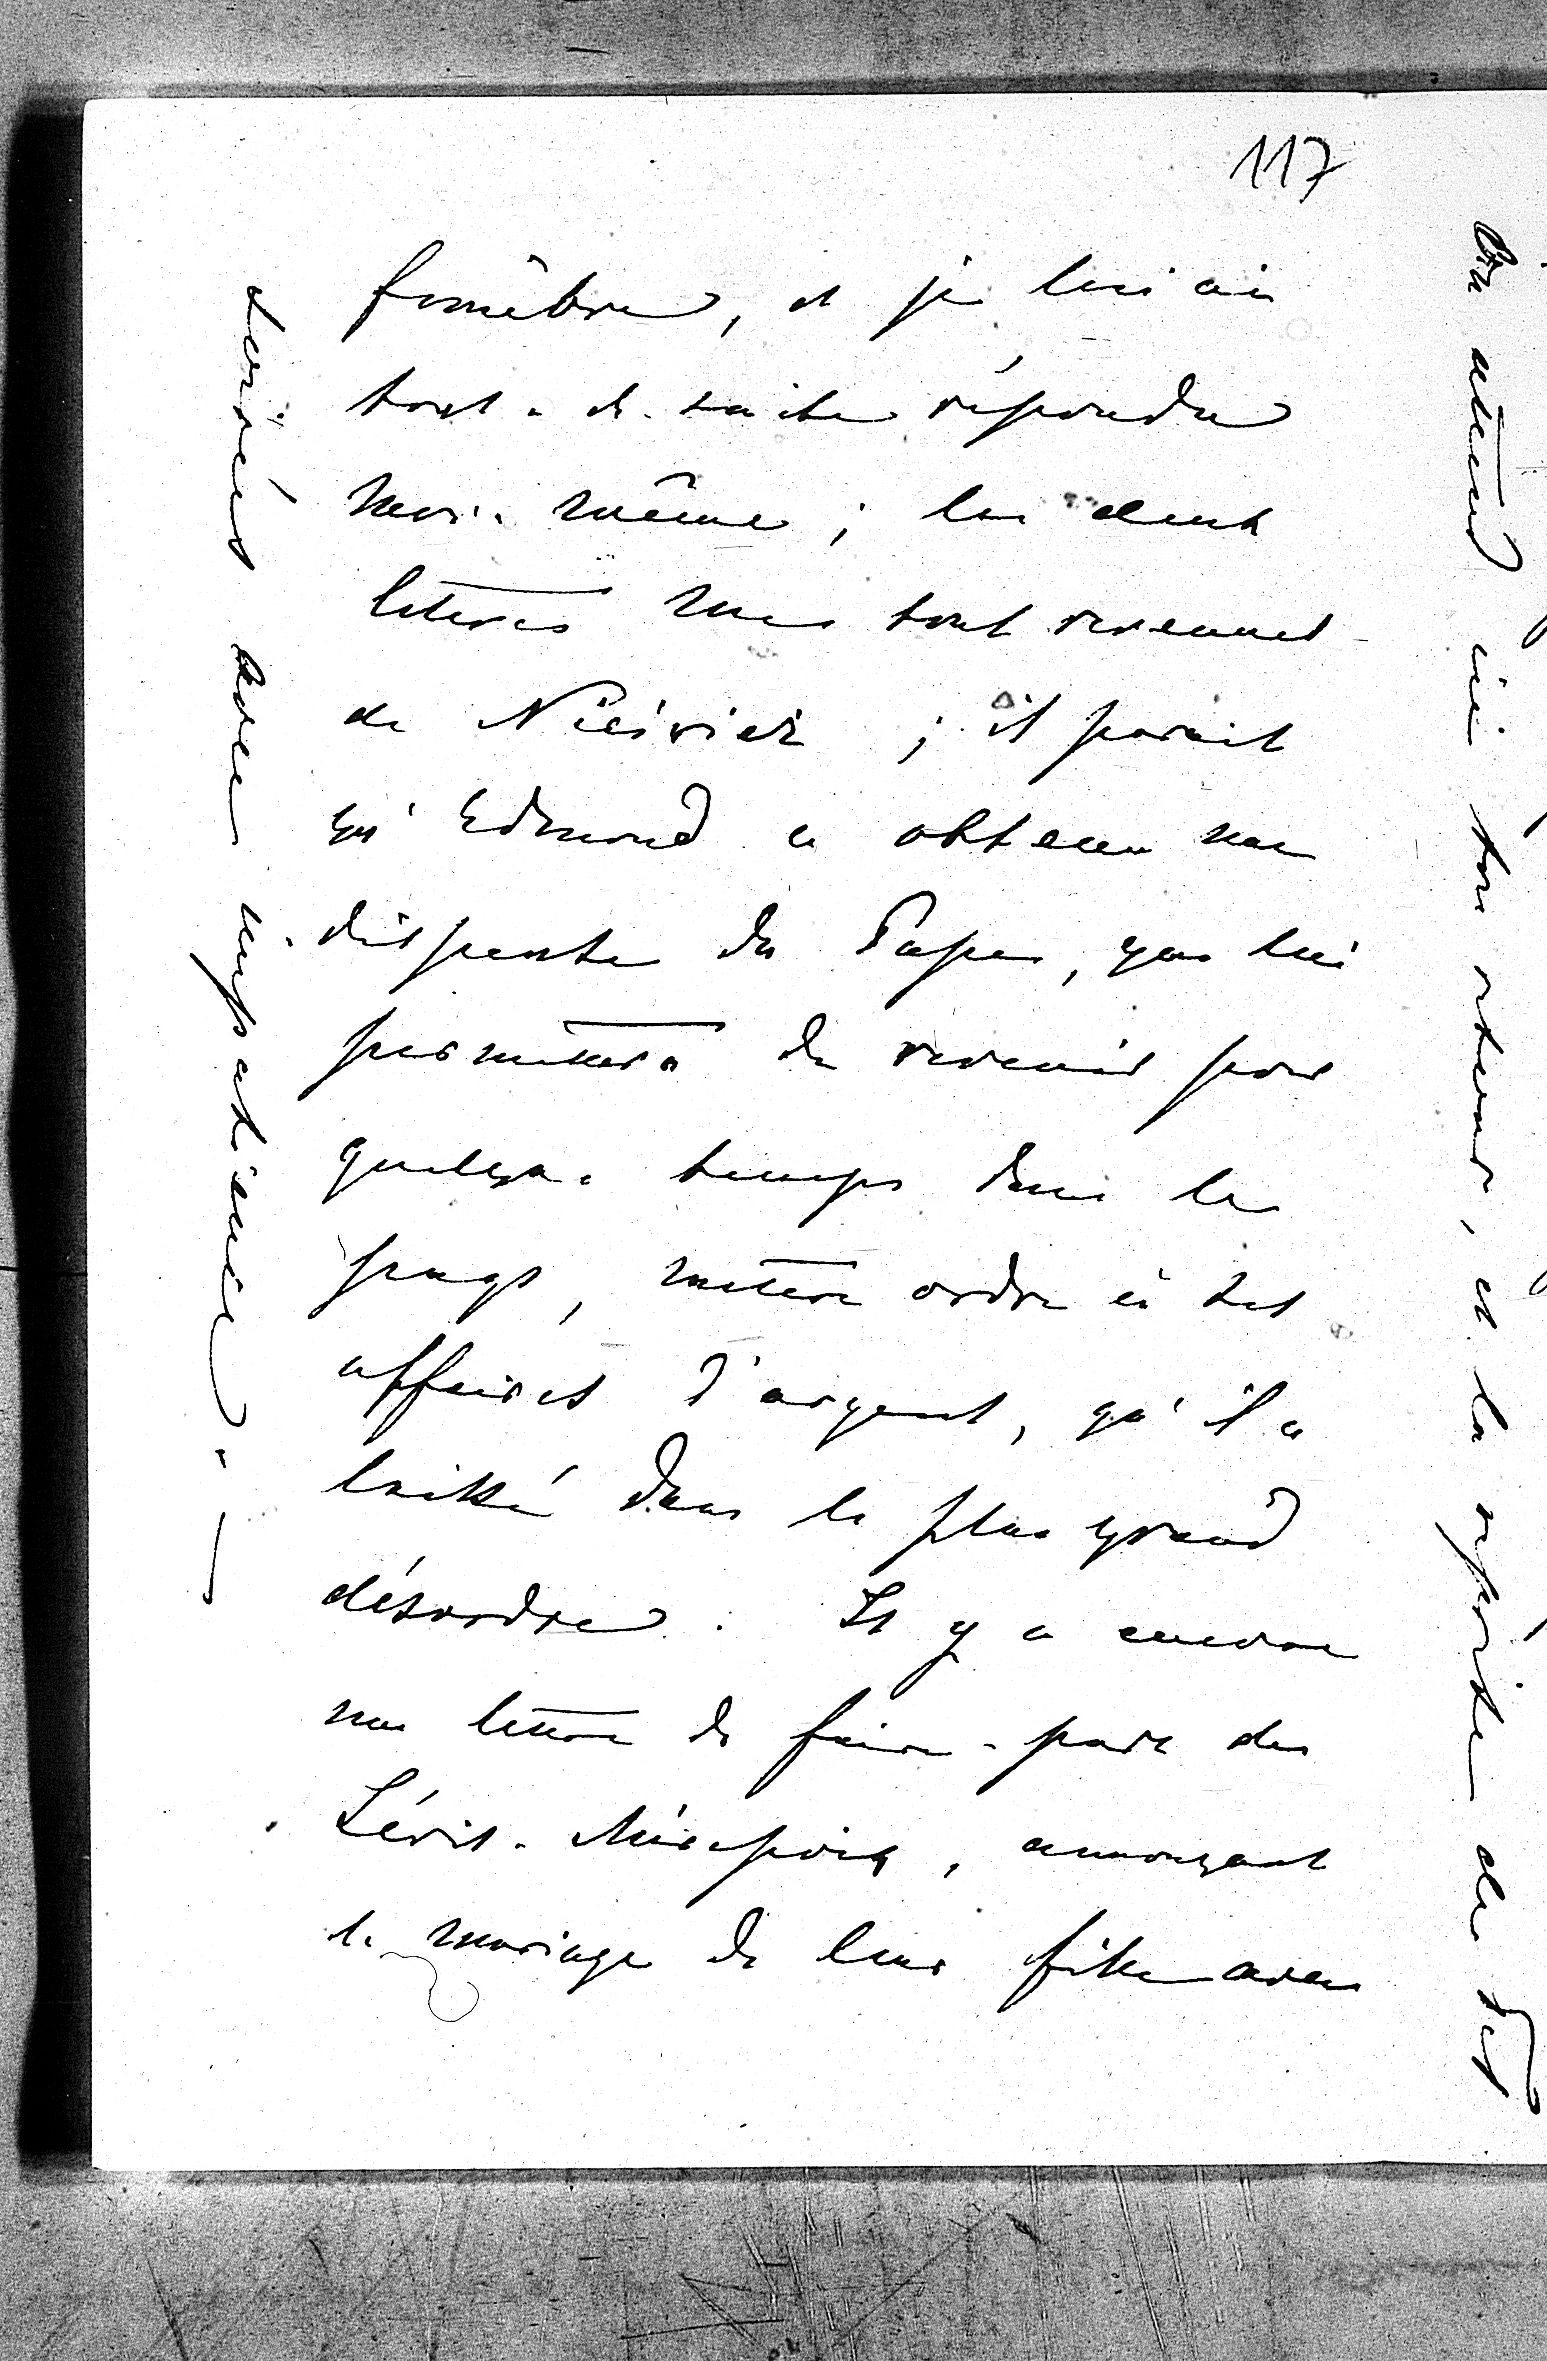 117
funèbre, et je lui ai
tout-de-suite répondu
moi-même ; les deux
lettres me sont revenues
de Nieśwież ; il parait
qu'Edmond a obtenu une
dispense du Pape, qui lui
permettera de revenir pour
quelque temps dans le
pays, mettre ordre à ses
affaires d'argent, qu'il a
laissé dans le plus grand
désordre. Il y a encore
une lettre de faire-part des
Lévis-Mirepoix, annonçant
le mariage de leur fille avec
On attend ici ton retour, et la reprise des
soirées avec impatience. —